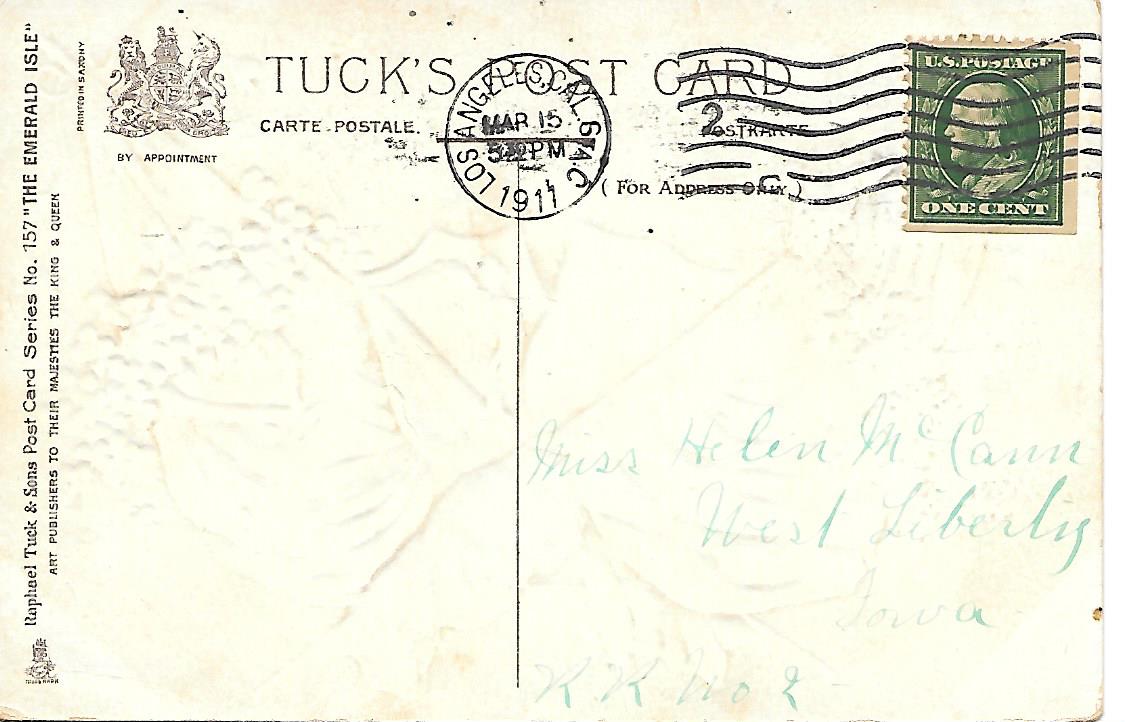 Raphael Tuck & Sons Post Card Series No. 157 "THE EMERALD ISLE"
ART PUBLISHERS TO THEIR MAJESTIES THE KING & QUEEN
PRINTED IN SAXONY
BY APPOINTMENT
TRADE MARK
TUCK'S POST CARD
CARTE POSTALE.
POSTKARTE
( FOR ADDRESS ONLY.)
LOS ANGELES, CAL.
MAR 15
PM
1911
2
C
U.S. POSTAGE
ONE CENT
Miss Helen McCann
West Liberty
Iowa
R R No 2